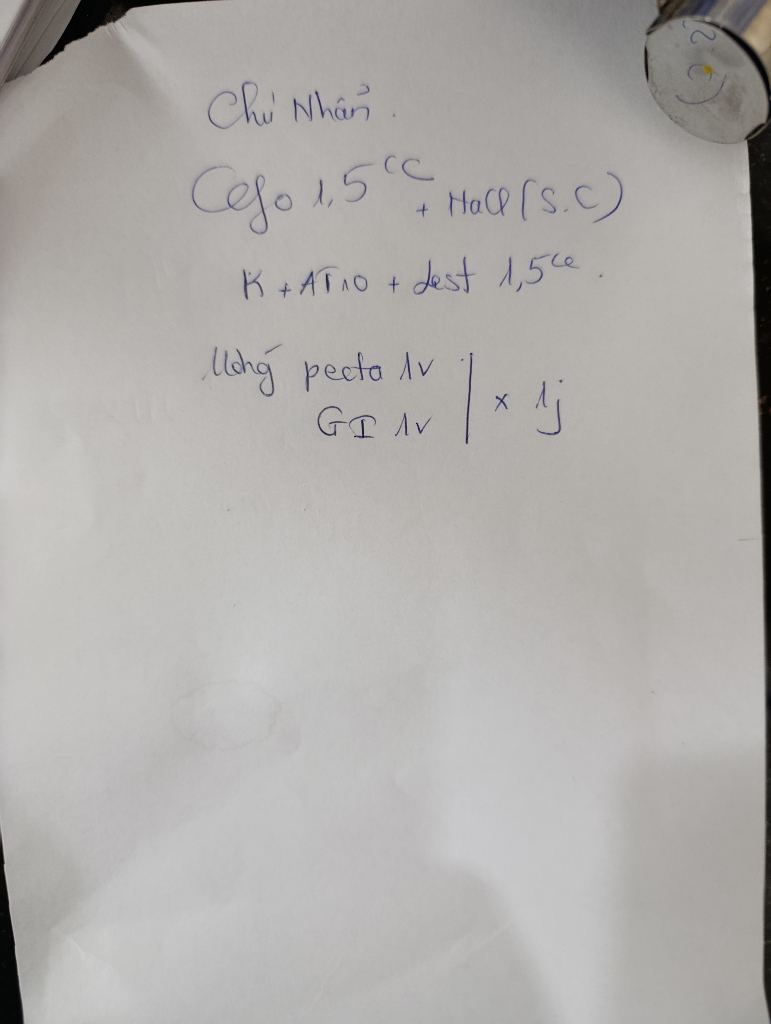 Chú Nhẩn.
Cefo 1,5cc + NaCl (S.C)
K + AT10 + dest 1,5cc.
Uống pecta 1v
GI 1v
x 1j